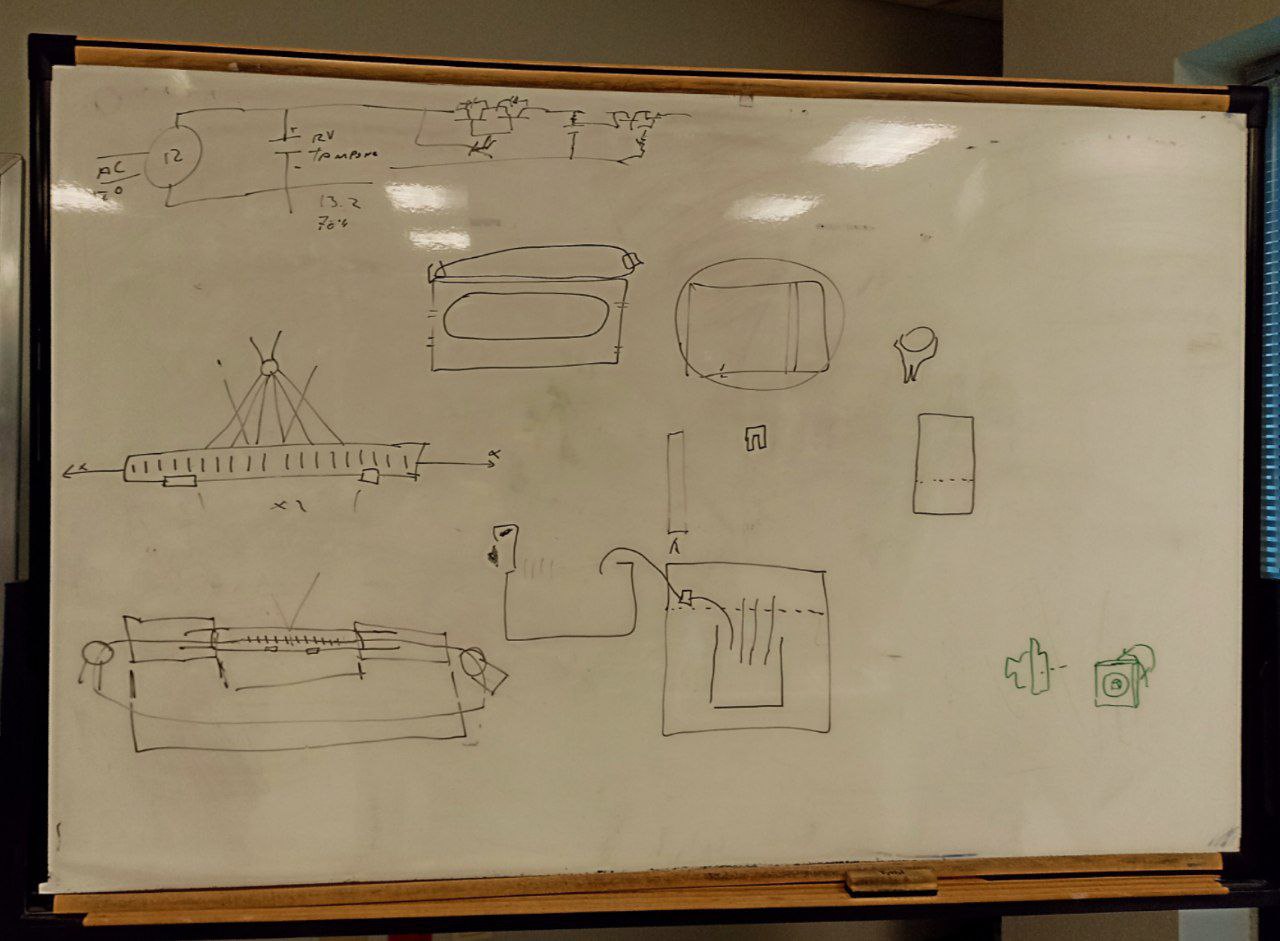 AC
12
+
12V
TAMPONE
-
13.2
70%
x
x
x2